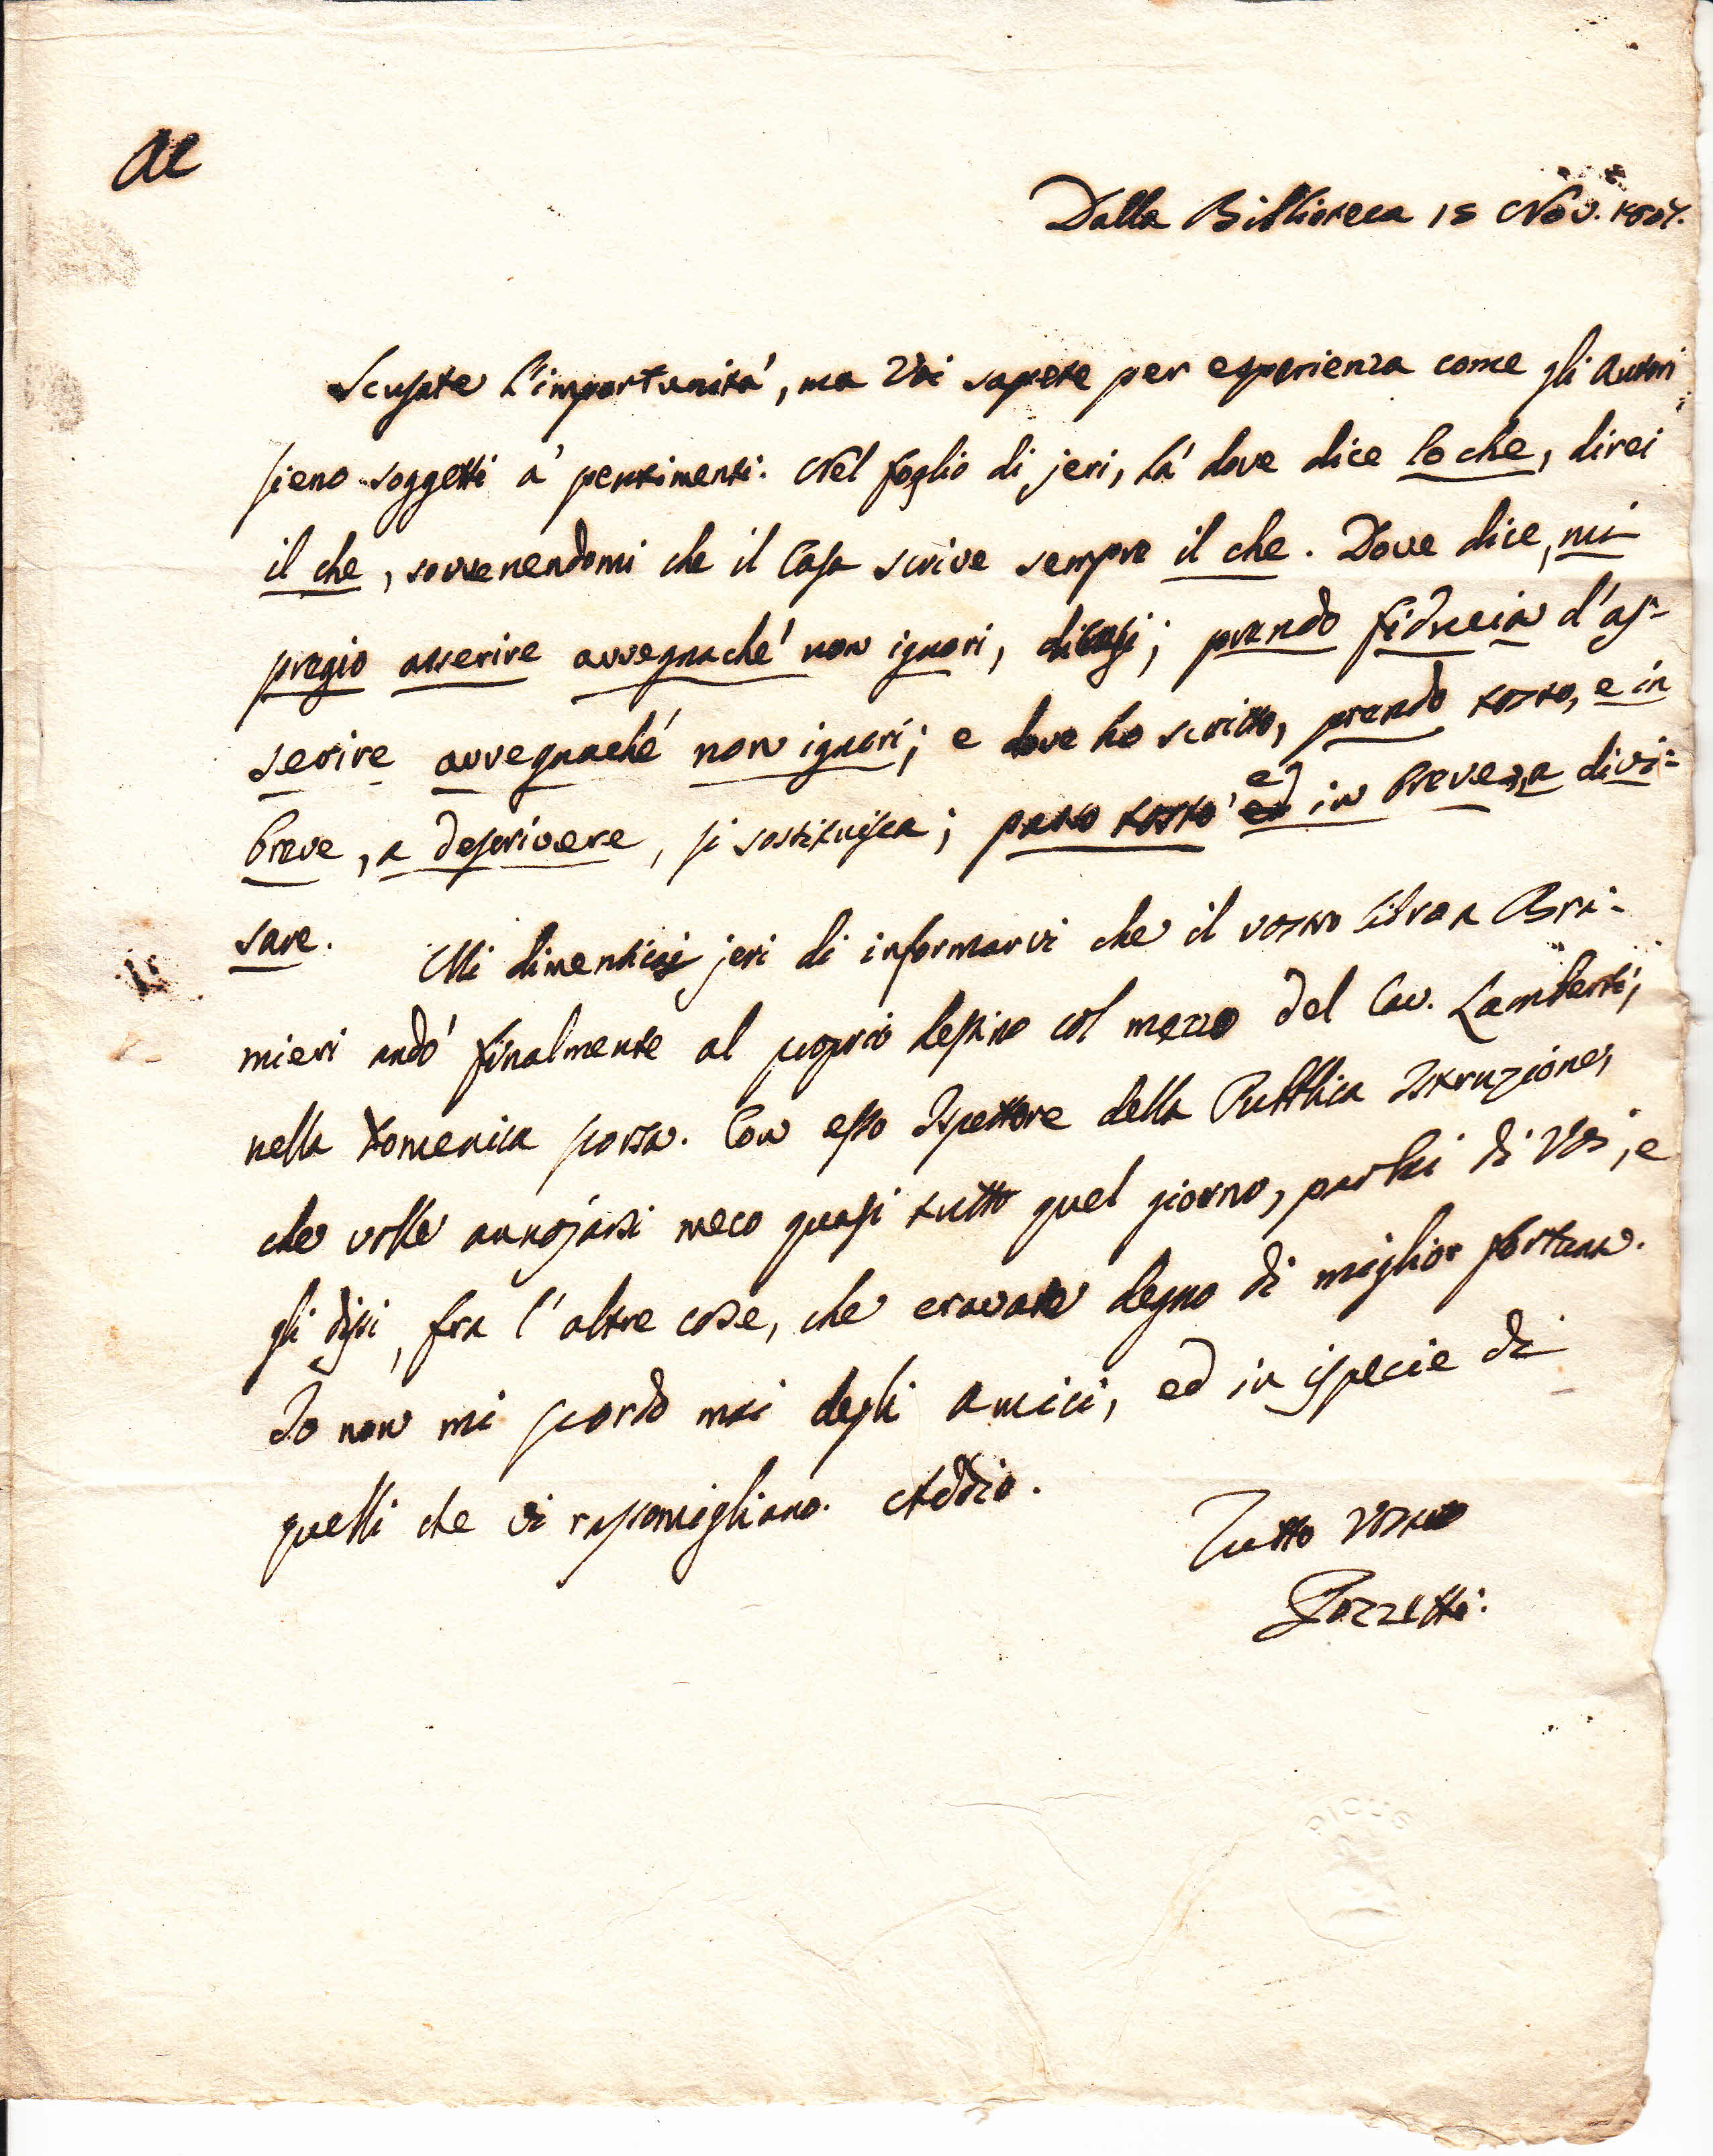 AC
Dalla Biblioteca 15 Nov. 1807.
Scusate l'importunità, ma Voi sapete per esperienza come gli Autori
sieno soggetti a' pentimenti. Nel foglio di jeri, là dove dice lo che, direi
il che, sovvenendomi che il Casa scrive sempre il che. Dove dice, mi
pregio asserire avvegnaché non ignari, dicasi; prendo fiducia d'as-
serire avvegnaché non ignari; e dove ho scritto, prendo tosto, e in
breve, a descrivere, si sostituisca; tosto e in brevezza divi=
sare. Mi dimenticai jeri di informarvi che il vostro libro a Bra=
mieri andò finalmente al proprio destino col mezzo del Cav. Lamberti,
nella Domenica scorsa. Con esso Ispettore della Pubblica Istruzione,
che volle annojarsi meco quasi tutto quel giorno, parlai di Voi, e
gli dissi, fra l'altre cose, che eravate degno di miglior fortuna.
Io non mi scordo mai degli amici, ed in ispecie di
quelli che vi rassomigliano. Addio.
Tutto vostro
Pozzetti.
PICUS